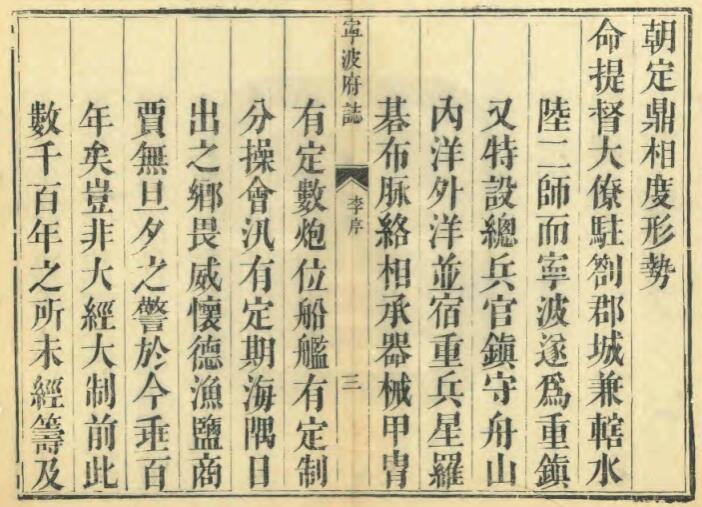 朝定鼎相度形勢
命提督大僚駐劄郡城兼轄水
陸二師而寧波遂爲重鎮
又特設總兵官鎮守舟山
內洋外洋並宿重兵星羅
碁布脉絡相承器械甲冑
寧波府誌
李序
三
有定數炮位船艦有定制
分操會汛有定期海隅日
出之鄉畏威懷德漁鹽商
賈無旦夕之警於今垂百
年矣豈非大經大制前此
數千百年之所未經籌及